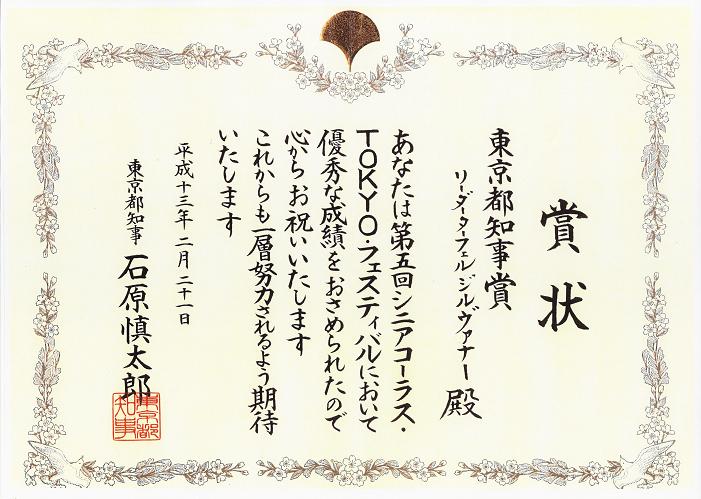 賞状
東京都知事賞
リーダーターフェルジルヴァナー 殿
あなたは第五回シニアコーラス・
TOKYO・フェスティバルにおいて
優秀な成績をおさめられたので
心からお祝いいたします
これからも一層努力されるよう期待
いたします
平成十三年二月二十一日
東京都知事 石原慎太郎
東京都
知事